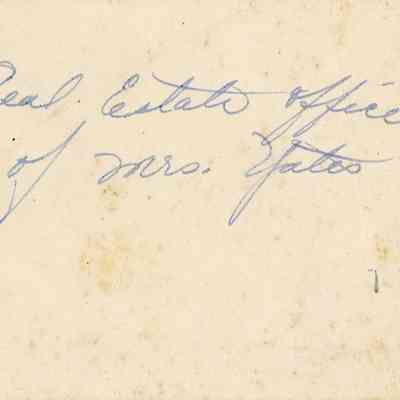 Real Estate office
of Mrs. Yates